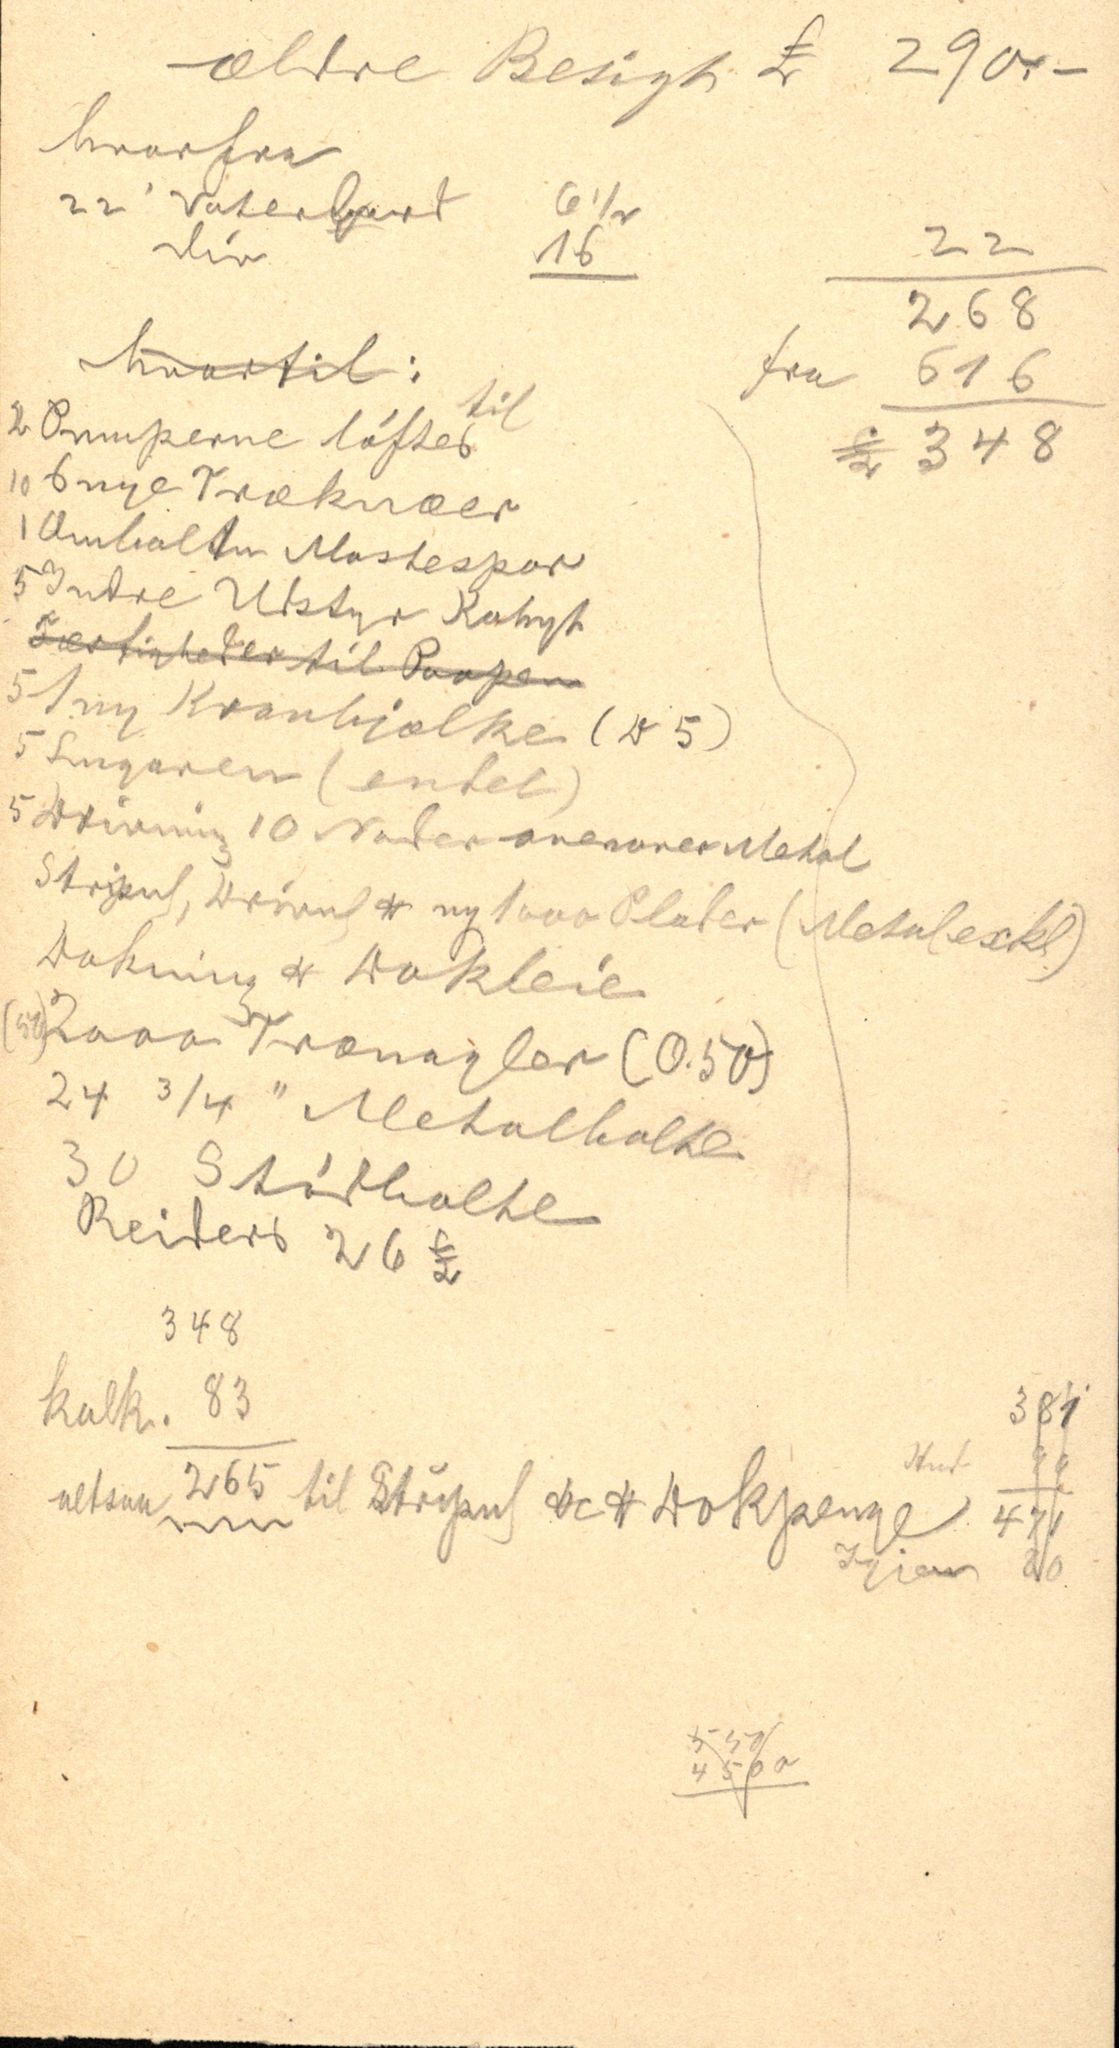 ældre Besigt £ 290.-
hvorfra
22' Vaterbord 6 1/2
div 16
22
268
hvortil:
fra 616
£ 348
2 Pumperne löftes til
10 6 nye Træknæer
1 Ombolten Mastespor
5 Indre Udstyr Kahyt
Færtigheder til Poopen
5 1 ny Kranbjælke (D 5)
5 Lugaren (endel)
5 Drivning 10 Nader ovenover Metal
Stripns, Drivns & ny 1000 Plader (Metal exkl)
Dokning & Dokleie
(50) 2000 Trænagler (0.50)
24 3/4 " Metalbolte
30 Stödbolte
Reiders 26 £
348
kalk. 83
altsaa 265 til Stripns &c & Dokpenge
381
90
471
Igjen 20
550
4500